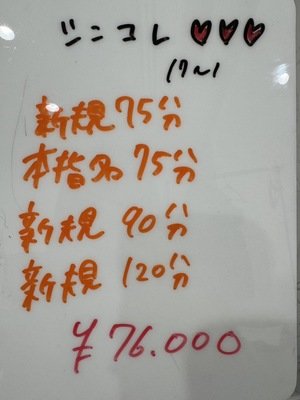 シンコレ ♥♥♥
17~1
新規 75分
本指名 75分
新規 90分
新規 120分
¥76.000